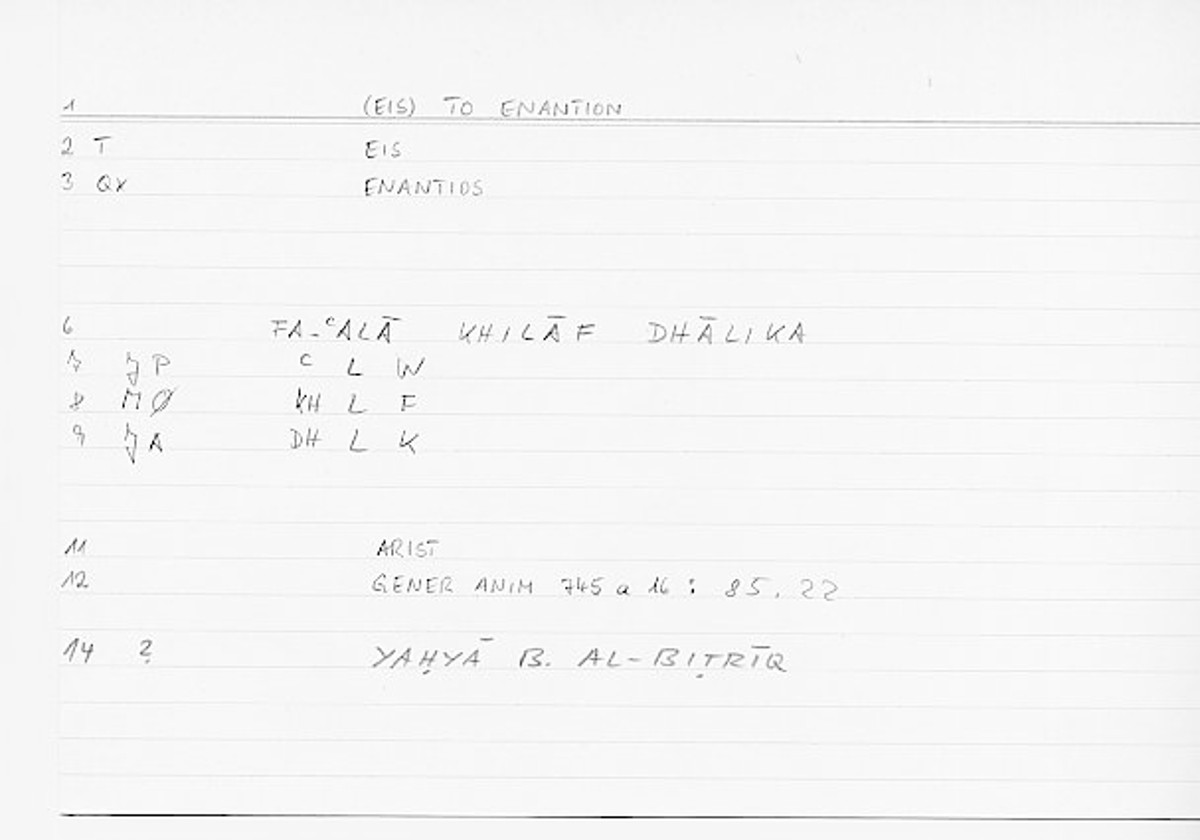 1 (EIS) TO ENANTION
2 T EIS
3 QX ENANTIOS
6 FA-ᶜALĀ KHILĀF DHĀLIKA
7 JP ᶜ L W
8 MØ KH L F
9 JA DH L K
11 ARIST
12 GENER ANIM 745 a 16 : 85.22
14 ? YAḤYĀ B. AL-BIṬRĪQ